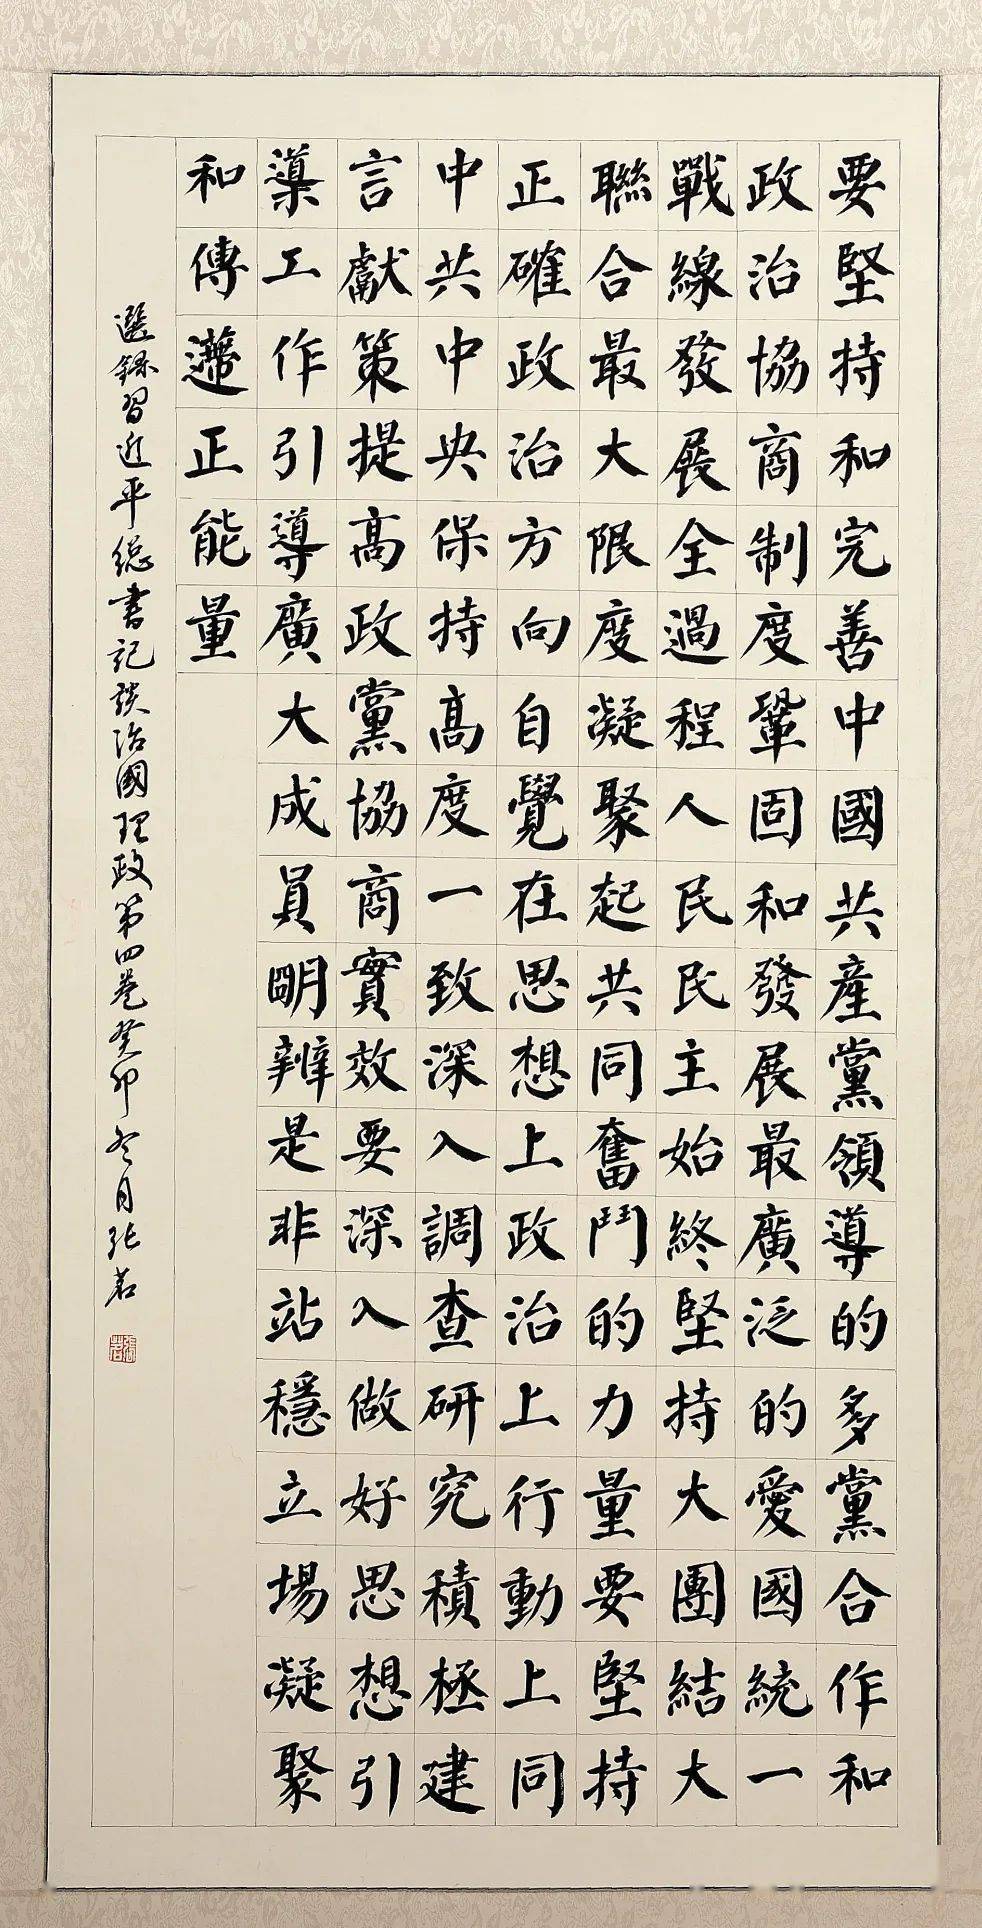 要堅持和完善中國共產黨領導的多黨合作和
政治協商制度鞏固和發展最廣泛的愛國統一
戰線發展全過程人民民主始終堅持大團結大
聯合最大限度凝聚起共同奮鬥的力量要堅持
正確政治方向自覺在思想上政治上行動上同
中共中央保持高度一致深入調查研究積極建
言獻策提高政黨協商實效要深入做好思想引
導工作引導廣大成員明辨是非站穩立場凝聚
和傳遞正能量
選錄習近平總書記談治國理政第四卷癸卯冬月張若
張若